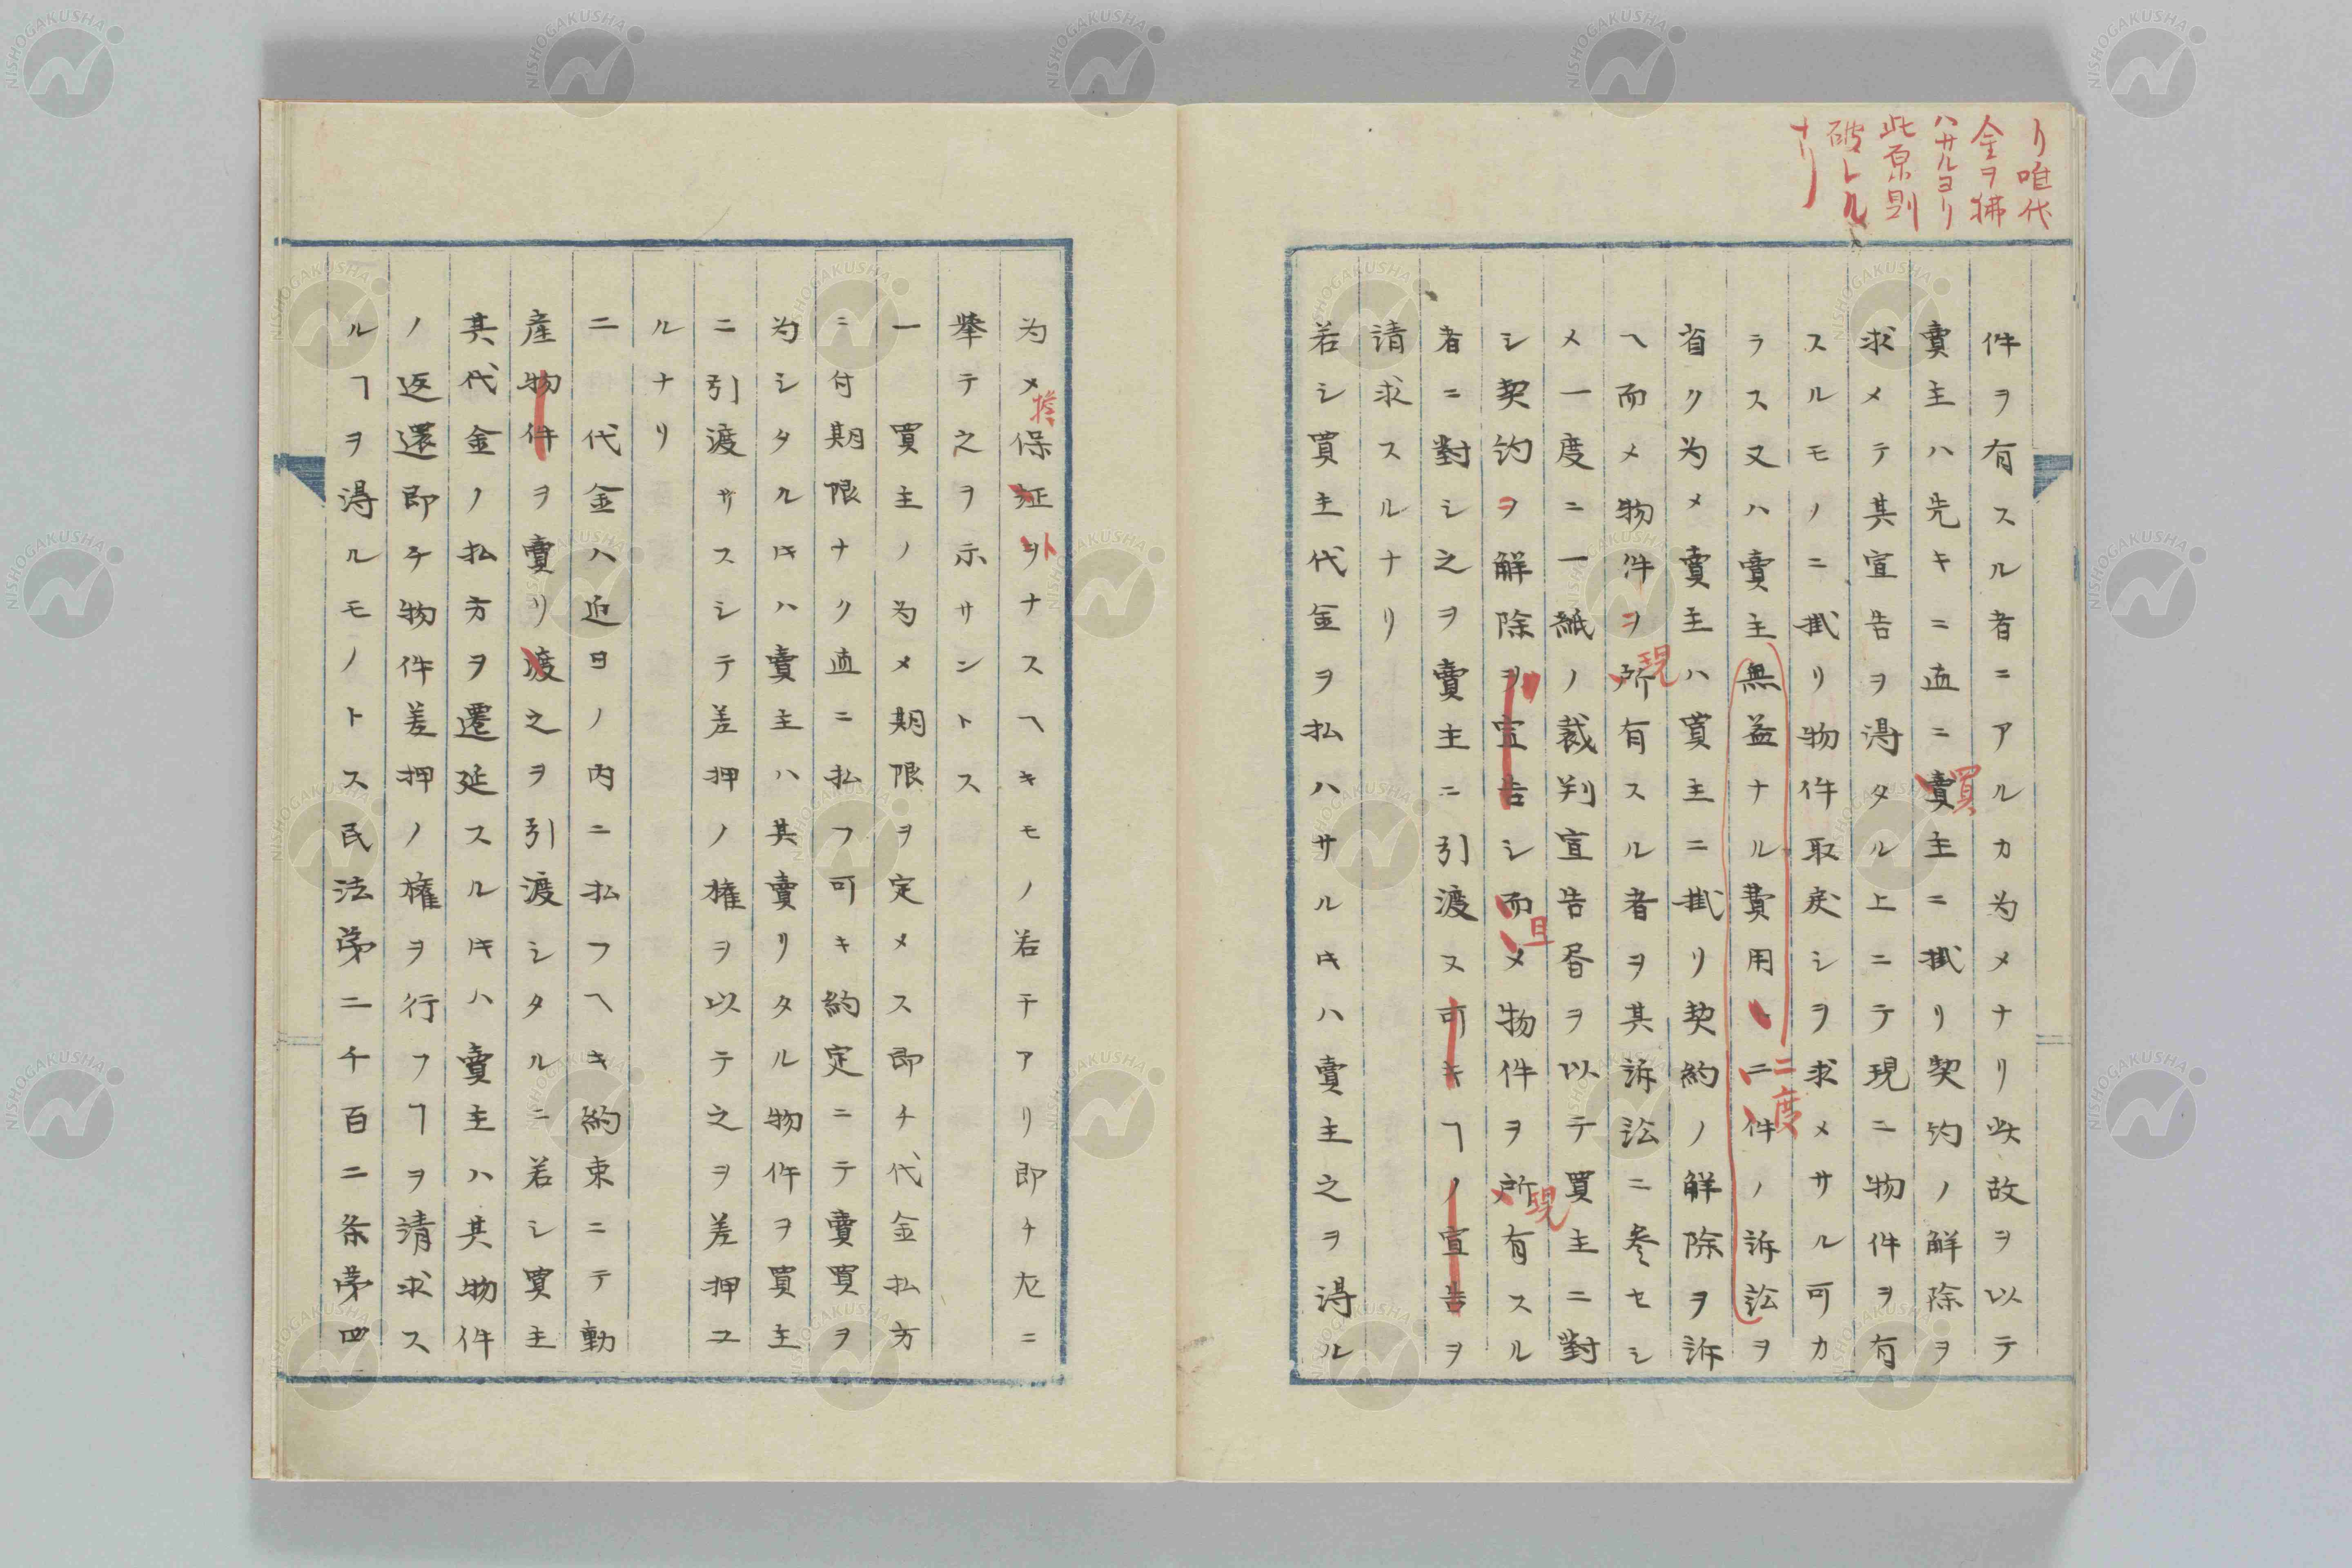 リ唯代
金ヲ拂
ハサルヨリ
此原則
破レル
ナリ
件ヲ有スル者ニアルカ為メナリ此故ヲ以テ
賣主ハ先キニ直ニ賣主ニ掛リ契約ノ解除ヲ
買
求メテ其宣告ヲ得タル上ニテ現ニ物件ヲ有
スルモノニ掛リ物件取戻シヲ求メサル可カ
ラス又ハ賣主無益ナル費用ト二件ノ訴訟ヲ
二度
省ク為メ賣主ハ買主ニ掛リ契約ノ解除ヲ訴
ヘ而メ物件ヲ所有スル者ヲ其訴訟ニ参セシ
現
メ一度ニ一紙ノ裁判宣告昏ヲ以テ買主ニ對
シ契約ヲ解除ヲ宣告シ而メ物件ヲ所有スル
且
現
者ニ對シ之ヲ賣主ニ引渡ス可キヿノ宣告ヲ
請求スルナリ
若シ買主代金ヲ払ハサルキハ賣主之ヲ得ル
為メ保証ヲナスヘキモノ若干アリ即チ左ニ
擔
ト
挙テ之ヲ示サントス
一 買主ノ為メ期限ヲ定メス即チ代金払方
ニ付期限ナク直ニ払フ可キ約定ニテ賣買ヲ
為シタルキハ賣主ハ其賣リタル物件ヲ買主
ニ引渡サスシテ差押ノ権ヲ以テ之ヲ差押ユ
ルナリ
二 代金ハ近日ノ内ニ払フヘキ約束ニテ動
産物件ヲ賣リ渡之ヲ引渡シタルニ若シ買主
其代金ノ払方ヲ遷延スルキハ賣主ハ其物件
ノ返還即チ物件差押ノ権ヲ行フヿヲ請求ス
ルヿヲ得ルモノトス民法第二千百二条第四
NISHOGAKUSHA